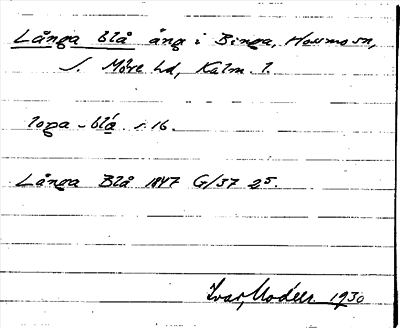 Långa blå äng i Binga, Hossmo sn,
S. Möre hd, Kalm. l.
loŋa-blå s. 16.
Långa Blå 1847 G/37 25.
Ivar Modéer 1930